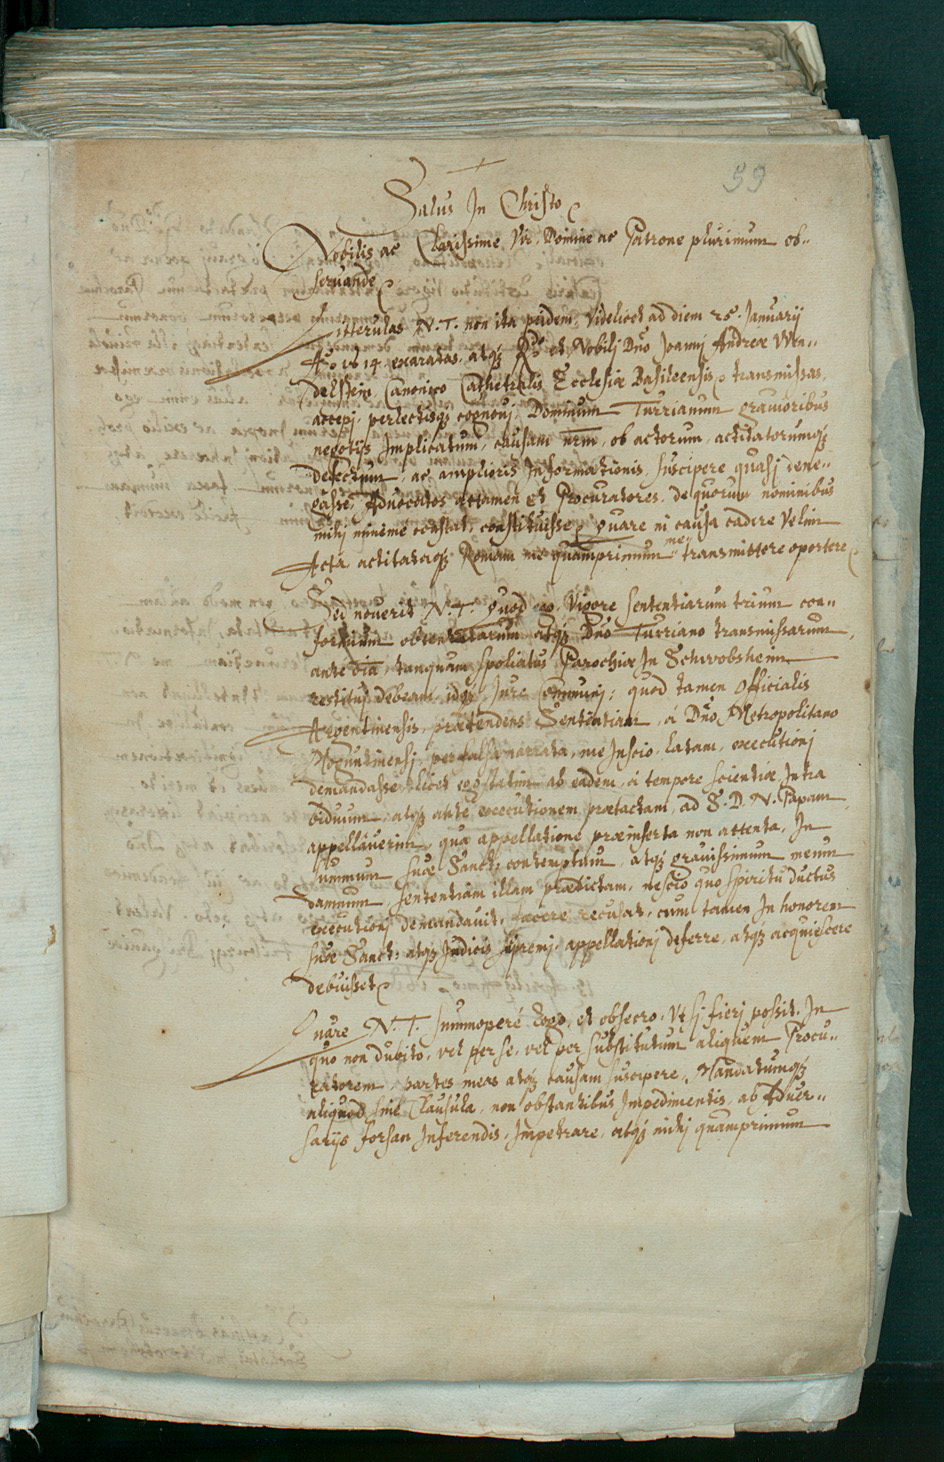 99
Salus In Christo
Nobilis ac Clarissime Vir. Domine ac Patrone plurimum ob-
seruande
Litterulas N. T. non ita pridem, videlicet ad diem 25. Januarij
Aõ 1614 exaratas, atqz Rdo et Nobilj Dno Joannj Andreæ Wen-
delstein Canonico Cathedralis Ecclesiæ Basileensis transmissas,
accepj, perlectisqz cognouj, Dominum Turrianum grauioribus
negotijs Implicatum, causam nrm, ob actorum, actitatorumqz
defectum, ac amplioris Informationis, suscipere quasj rene-
gasse, Aduocatos attamen et Procuratores, de quorum nominibus
mihj minimè constat, constituisse, quare ni causa cadere Velim
Acta actitataqz Romam me quamprimum transmittere oportere
Sed nouerit N. T. quod ego Vigore sententiarum trium con-
formium obtentarum atqz Dno Turriano transmissarum,
ante oia, tanquam spoliatus Parochiæ In Schwobsheim
restituj debeam, idqz Jure Communj; quod tamen Officialis
Argentinensis, prætendens Sententiam, á Dno Metropolitano
Moguntinensj, per falsa narrata, me Inscio, latam, executionj
demandasse, licet ego statim ab eadem, á tempore scientiæ, Intra
biduum, atqz ante executionem prætactam, ad S. D. N. Papam,
appellauerim, qua appellatione præinserta non attenta, In
summum suæ Sanct: contemptum, atqz grauissimum meum
damnum, sententiam illam prædictam, nescio quo spiritu ductus
executionj demandauit, facere recusat, cum tamen In honorem
suæ Sanct: atqz Judicis supremj, appellationj deferre, atqz acquiescere
debuisset
Quare N. T. summoperé rogo, et obsecro, Vt sj fierj possit, In
quo non dubito, vel per se, vel per substitutum aliquem Procu-
ratorem, partes meas atqz causam suscipere, Mandatumqz
aliquod sine Clausula, non obstantibus Impedimentis, ab Aduer-
sarijs forsan Inferendis, Impetrare, atqz mihj quamprimum